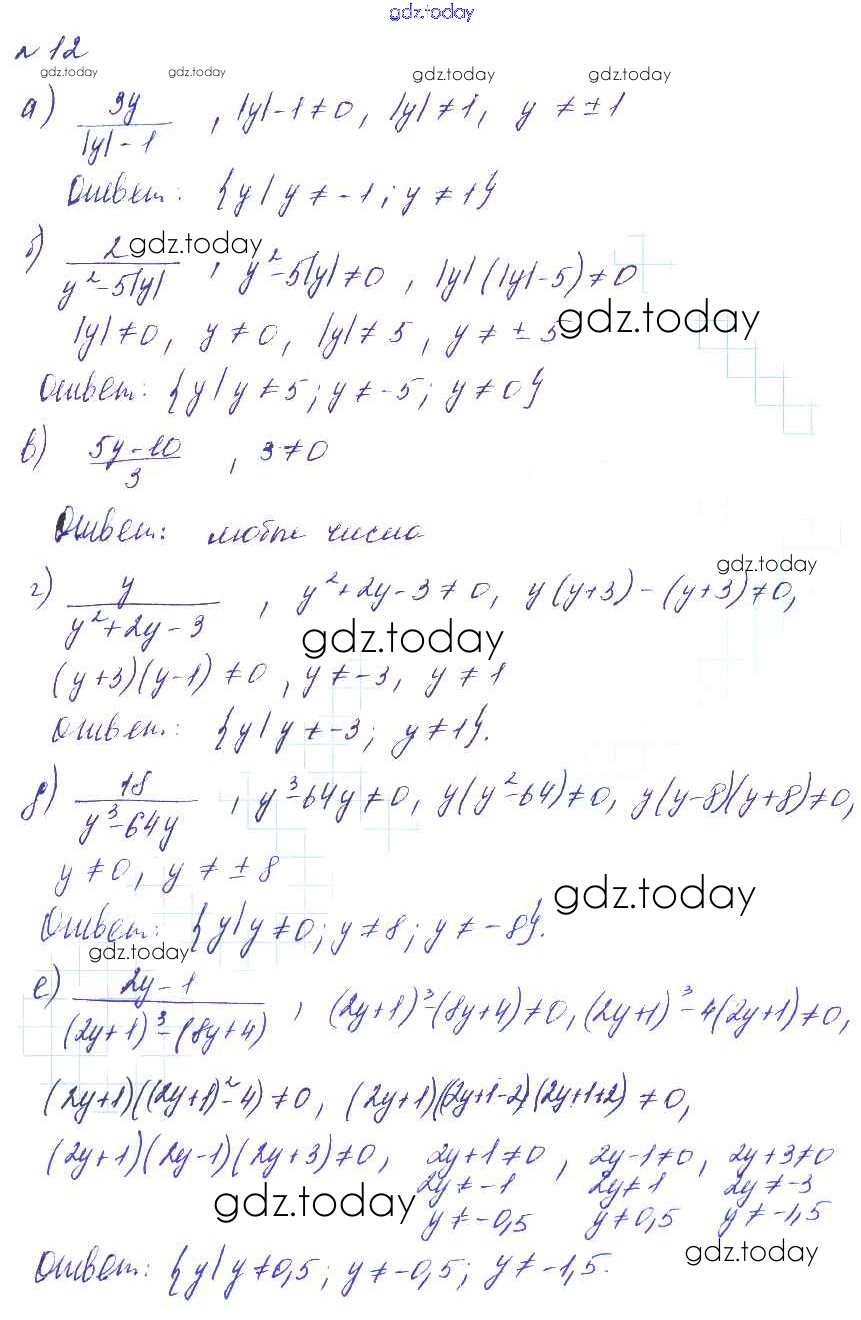 gdz.today
№ 12
gdz.today gdz.today gdz.today gdz.today
а) 9y / (|y| - 1) , |y| - 1 ≠ 0, |y| ≠ 1, y ≠ ± 1
Ответ: {y | y ≠ -1; y ≠ 1}
gdz.today
б) 2 / (y² - 5|y|) , y² - 5|y| ≠ 0 , |y| (|y| - 5) ≠ 0
gdz.today
|y| ≠ 0, y ≠ 0, |y| ≠ 5, y ≠ ± 5
Ответ: {y | y ≠ 5; y ≠ -5; y ≠ 0}
в) (5y - 10) / 3 , 3 ≠ 0
Ответ: любые числа
gdz.today
г) y / (y² + 2y - 3) , y² + 2y - 3 ≠ 0, y (y+3) - (y+3) ≠ 0,
gdz.today
(y+3)(y-1) ≠ 0, y ≠ -3, y ≠ 1
Ответ: {y | y ≠ -3; y ≠ 1}.
д) 18 / (y³ - 64y) , y³ - 64y ≠ 0, y(y² - 64) ≠ 0, y(y-8)(y+8) ≠ 0,
y ≠ 0, y ≠ ± 8
gdz.today
Ответ: {y | y ≠ 0; y ≠ 8; y ≠ -8}.
gdz.today
е) (2y - 1) / ((2y+1)³ - (8y+4)) , (2y+1)³ - (8y+4) ≠ 0, (2y+1)³ - 4(2y+1) ≠ 0,
(2y+1)((2y+1)² - 4) ≠ 0, (2y+1)(2y+1-2)(2y+1+2) ≠ 0,
(2y+1)(2y-1)(2y+3) ≠ 0, 2y+1 ≠ 0, 2y-1 ≠ 0, 2y+3 ≠ 0
gdz.today 2y ≠ -1 2y ≠ 1 2y ≠ -3
y ≠ -0,5 y ≠ 0,5 y ≠ -1,5
gdz.today
Ответ: {y | y ≠ 0,5; y ≠ -0,5; y ≠ -1,5.